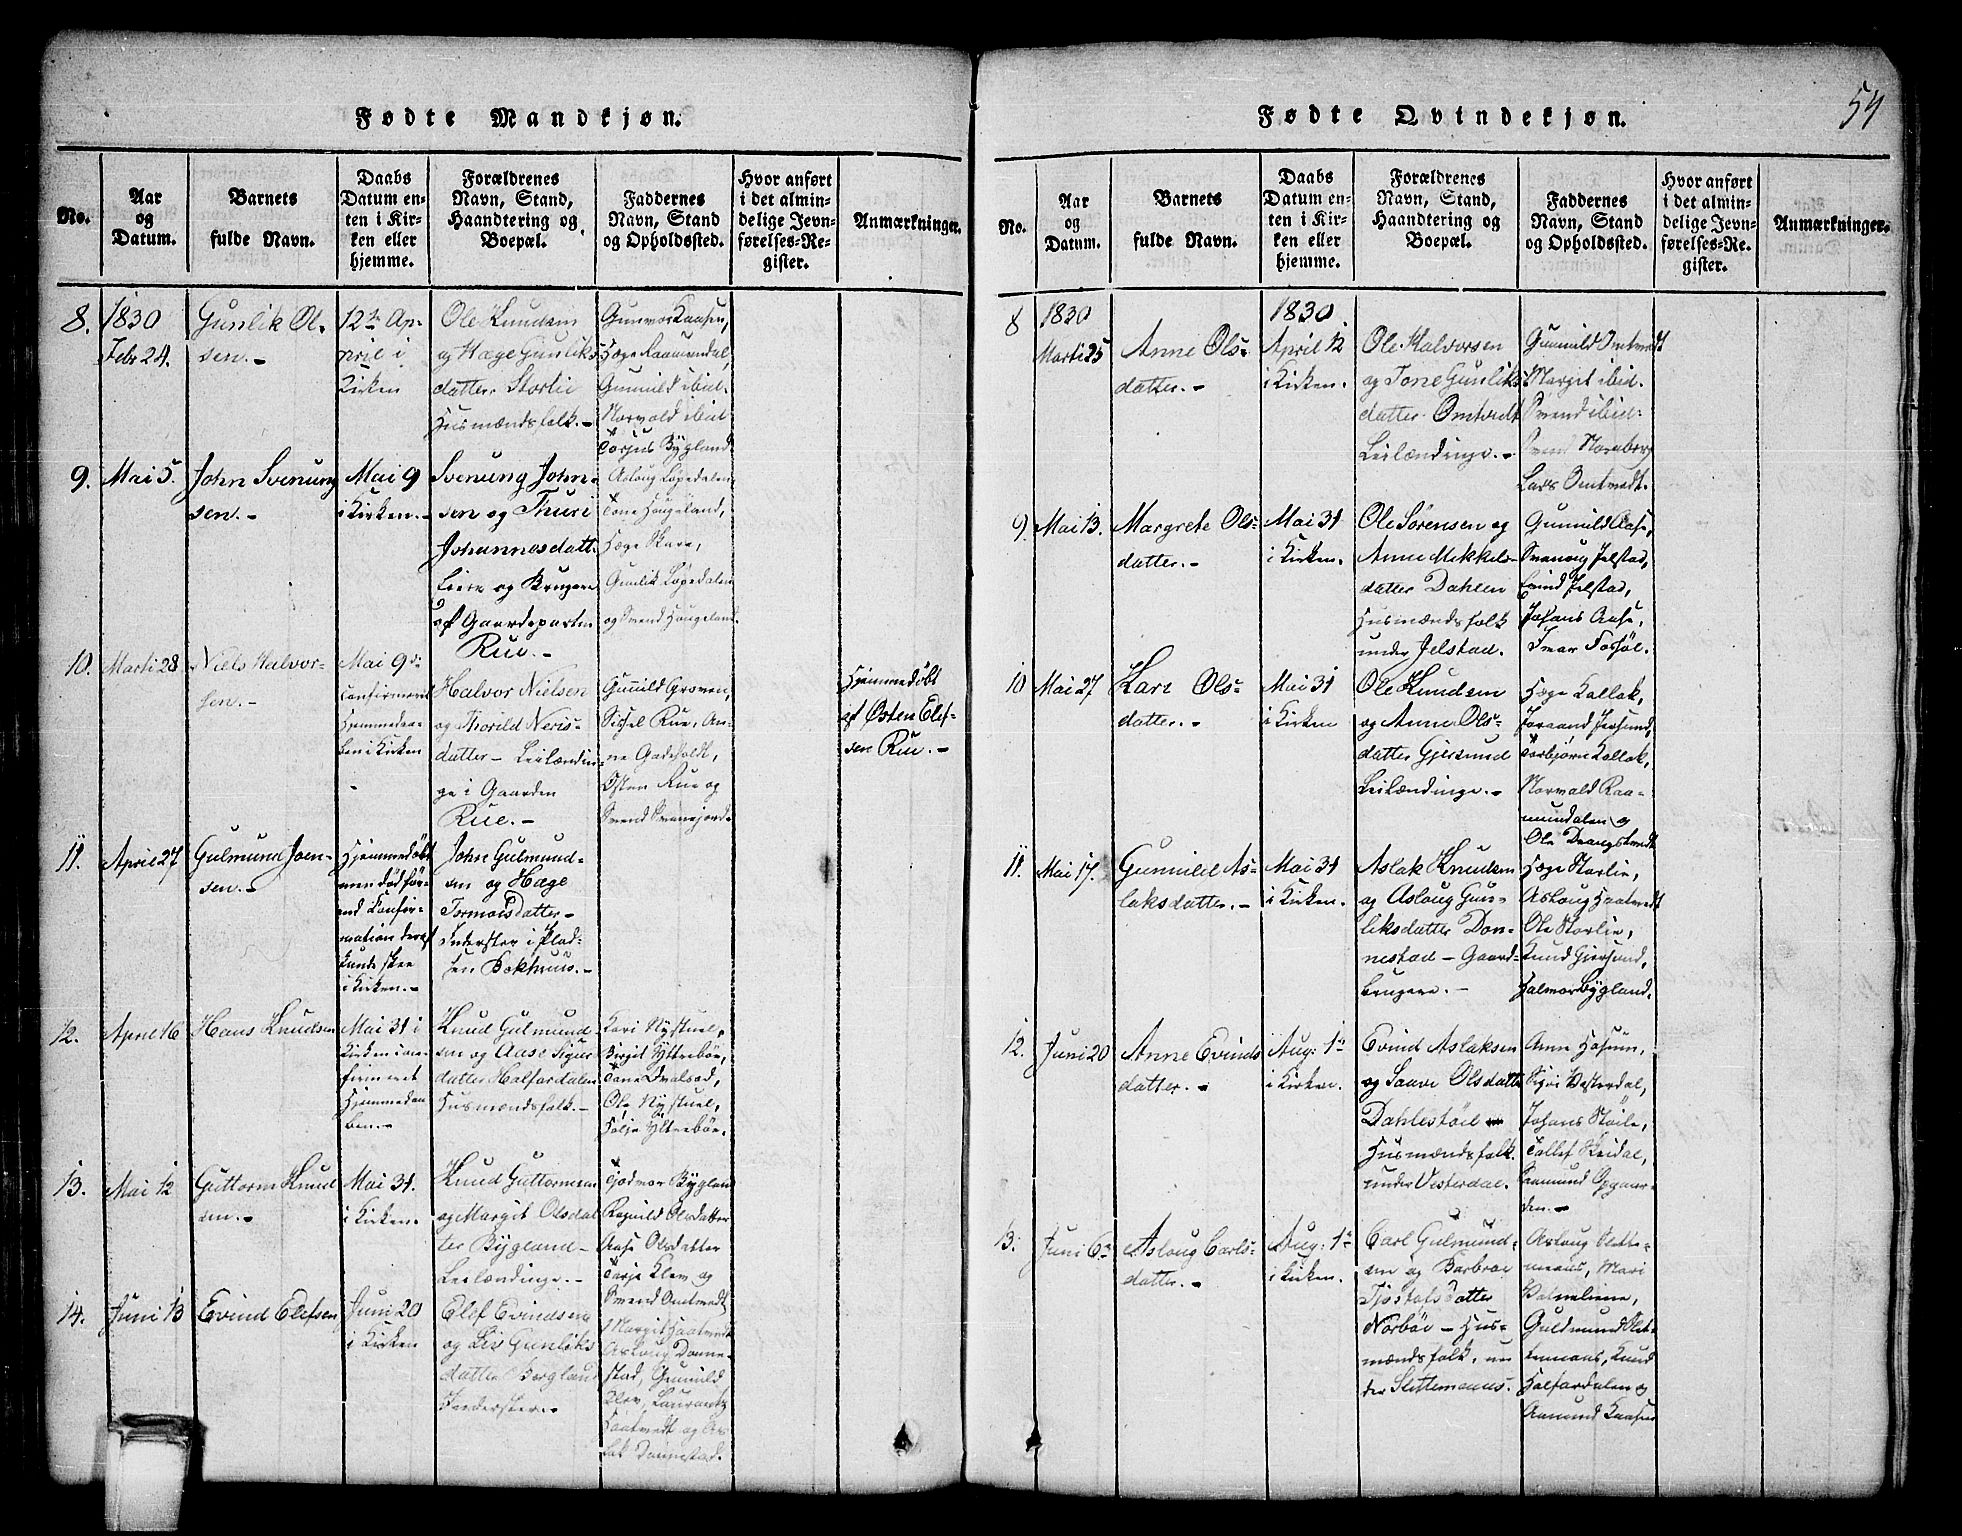 54
Fødte Mandkjøn.
No.
Aar
og
Datum.
Barnets
fulde Navn.
Daabs
Datum en-
ten i Kir-
ken eller
hjemme.
Forældrenes
Navn, Stand,
Haandtering og
Boepæl.
Faddernes
Navn, Stand
og Opholdssted.
Hvor anført
i det almin-
delige Jevn-
førelses-Re-
gister.
Anmærkninger.
8.
1830
Febr 24.
Gunlik Ol-
sen.-
12te Ap-
pril i
Kirken
Ole Knudsen
og Hæge Gunliks
datter Storlie
Husmændsfolk.-
Gunvor Kaasen,
Hæge Raamundal,
Gunnild ibid.
Norvald ibid.
Torjus Bygland
9.
Mai 5.
John Svenung
sen.-
Mai 9
i Kirken.-
Svenung John-
sen og Thuri
Johannesdatt.
Leiere og Brugere
af Gaardeparten
Rue.-
Aslaug Løpedalen
Tone Haugeland,
Hæge Skare,
Gunlik Løpedalen
og Svend Haugeland.
10.
Marti 28
Niels Halvor-
sen.-
Mai 9de
confirmeret
Hjemmedaa-
ben i Kirken
Halvor Nielsen
og Thorild Neris-
datter- Leilændin-
ge i Gaarden
Rue.-
Gunild Groven,
Sissel Rue, An-
ne Gadeholdt,
Østen Rue og
Svend
Hjemmedøbt
af Østen Elef-
sen Rue.-
11.
April 27
Gulmund Joen-
sen.-
Hjemmedøbt
men død før-
end Confir-
mation deraf
kunde skee
i Kirken.-
John Gulmund-
sen og Hæge
Tormodsdatter-
Inderster i Plad-
sen Bokhuus.-
12.
April 16
Hans Knudsen
Mai 31 i
Kirken con-
firmeret
Hjemmedaa
ben.-
Knud Gulmund
sen og Aase Sigur
datter Halfardalen
Husmændsfolk.-
Kari Nystuel,
Birgit Yttrebøe,
Tone
Ole Nystuel,
Tølje Yttrebøe.
13.
Mai 12
Guttorm Knud
sen.-
Mai 31.
i Kirken.-
Knud Guttormsen
og Margit Olsdat
ter Bygland-
Leilændinge.-
Tjodmor Bygland
Ragnild Olsdatter
Aase Olsdatter
Tarje Klev og
Svend Omtvedt
14.
Juni 13
Evind Elefsen
Juni 20
i Kirken
Elef Evindsen
og Liv Gunliks
datter Bergland
Inderster.-
Margit Haatvedt
Aslaug Donne-
stad, Gunnild
Klev, Laurantz
Haatvedt og As
lak Donnestad.
Fødte Qvindekjøn.
No.
Aar
og
Datum.
Barnets
fulde Navn.
Daabs
Datum en-
ten i Kir-
ken eller
hjemme.
Forældrenes
Navn, Stand,
Haandtering og
Boepæl.
Faddernes
Navn, Stand
og Opholdssted.
Hvor anført
i det almin-
delige Jevn-
førelses-Re-
gister.
Anmærkninger.
8
1830
Marti 25
Anne Ols-
datter.-
1830.
April 12
i Kirken.
Ole Halvorsen
og Tone Gunliks
datter Omtvedt
Leilændinge.-
Gunnild Omtvedt
Margit ibid.
Svend ibid.
Svend
Lars Omtvedt.
9.
Mai 13.
Margrete Ols-
datter.-
Mai 31
i Kirken.
Ole Sørensen og
Anne Mekkels-
datter Dahlen
Husmændsfolk
under Jelstad.
Gunnild Aase,
Svanoug Jelstad,
Evind Jelstad,
Johans Aase,
Ivar Forsøl.
10
Mai 27
Kari Ols-
datter.-
Mai 31
i Kirken
Ole Knudsen
og Anne Ols-
datter Gjersund
Leilændinge.-
Hæge Kallak,
Joraand Jersund,
Torbjørn Kallak,
Norvald Raa-
mundalen og
Ole
11.
Mai 17.
Gunnild As-
laksdatter.-
Mai 31
i Kirken.
Aslak Knudsen
og Aslaug Gun-
leksdatter Don-
nestad- Gaard-
brugere.-
Hæge Storlie,
Aslaug Haatvedt
Ole Storlie,
Knud Gjersund,
Halvor Bygland.
12.
Juni 20
Anne Evinds
datter.-
Aug: 1te
i Kirken.
Evind Aslaksen
og Saave Olsdatte
Dahlestøel
Husmændsfolk
under Vesterdal.
Anne
Sigri Vesterdal,
Johans Støile,
Tallef
Raamund Opgaar-
den.-
13.
Juni 6te
Aslaug Carls-
datter.-
Aug: 1te
i Kirken.
Carl Gulmund-
sen og Barbroe
Tjostafsdatter
Norbøe- Hus-
mændsfolk un
der Slettemaaes.
Aslaug Slette-
meaas, Mari
Guldmund Slet-
temaas, Knud
Halfardalen og
Aamund Kaasen